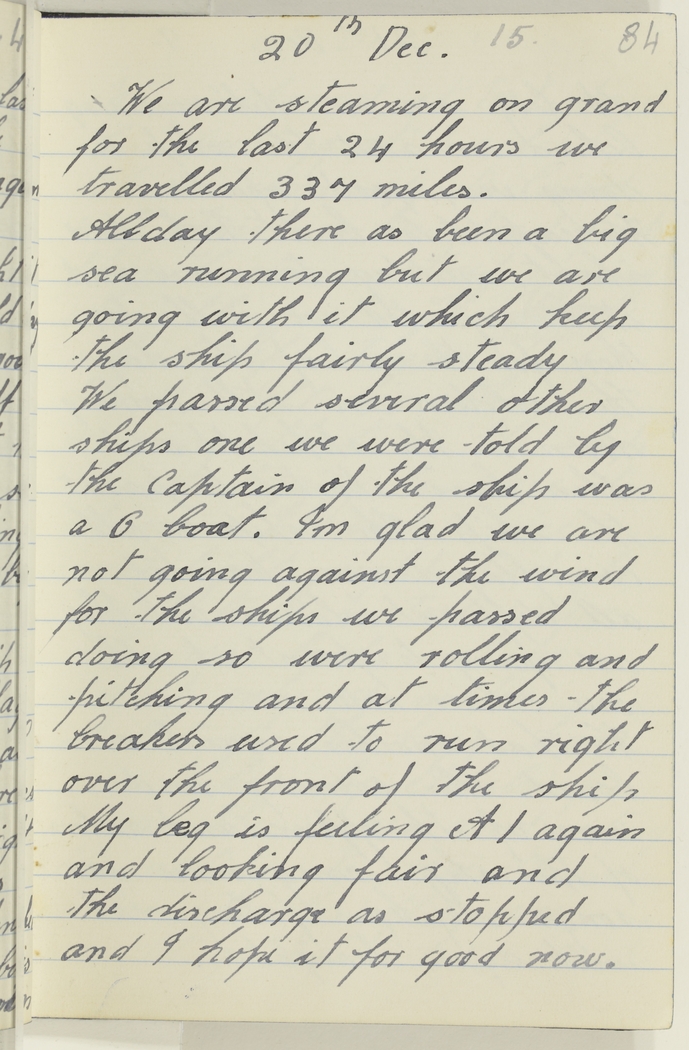 20th Dec. 15. 84
We are steaming on grand
for the last 24 hours we
travelled 337 miles.
All day there as been a big
sea running but we are
going with it which keep
the ship fairly steady
We passed several other
ships one we were told by
the Captain of the ship was
a G boat. Im glad we are
not going against the wind
for the ships we passed
doing so were rolling and
pitching and at times the
breakers used to run right
over the front of the ship
My leg is feeling A1 again
and looking fair and
the discharge as stopped
and I hope it for good now.